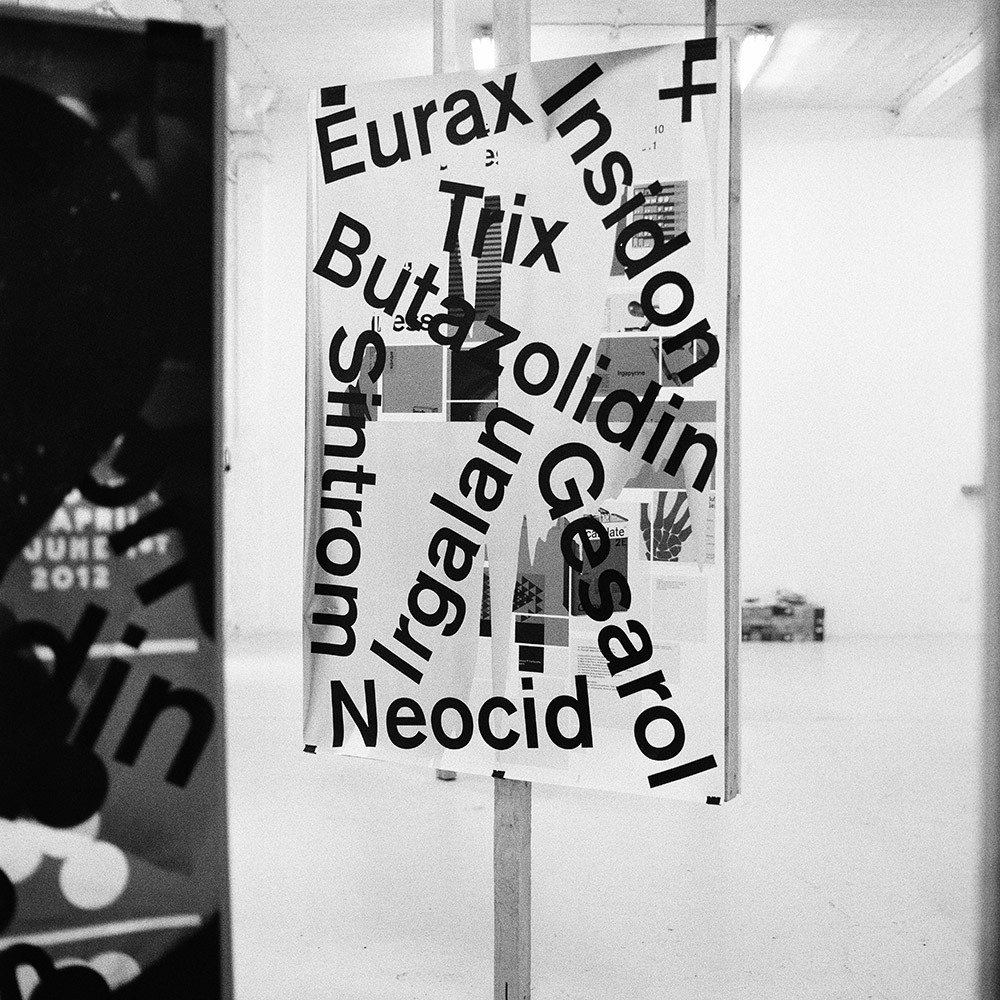 Eurax
Insidon
Trix
Butazolidin
Sintrom
Irgalan
Gesarol
Neocid
Irgapyrine
10
APRIL
JUNE 1ST
2012
din